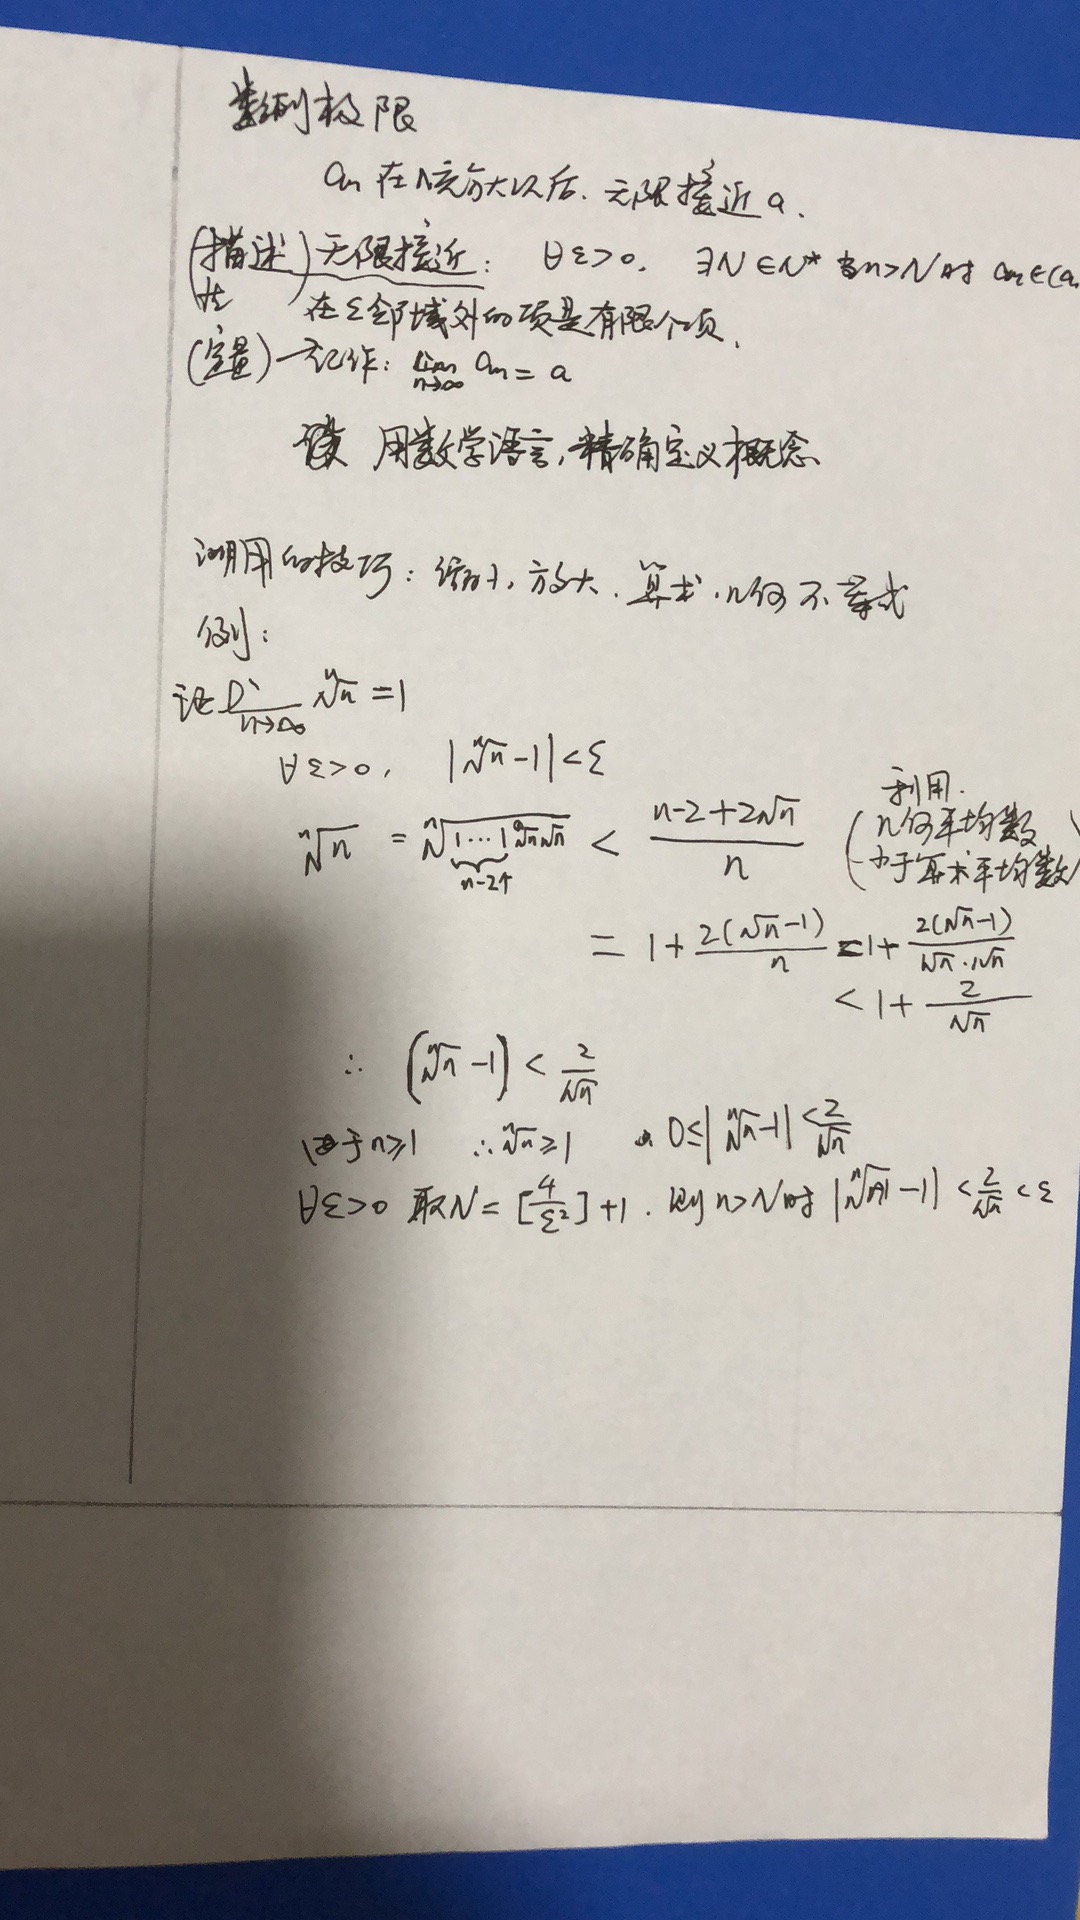 数列极限
aₙ 在n充分大以后, 无限接近 a.
(描述性) 无限接近: ∀ε>0, ∃N∈N* 当n>N时 aₙ∈(a
在ε邻域外的项是有限个项.
(定量) 记作: lim n→∞ aₙ = a
用数学语言, 精确定义概念
用的技巧: 缩小, 放大, 算术,几何不等式
例:
证 lim n→∞ ⁿ√n = 1
∀ε>0, |ⁿ√n - 1| < ε
ⁿ√n = ⁿ√(1···1 √n √n) < (n-2+2√n)/n (利用几何平均数小于算术平均数)
n-2个
= 1 + 2(√n-1)/n = 1 + 2(√n-1)/(√n·√n)
< 1 + 2/√n
∴ (ⁿ√n - 1) < 2/√n
由于n≥1 ∴ ⁿ√n ≥ 1 0≤|ⁿ√n - 1| < 2/√n
∀ε>0 取N = [4/ε²]+1. 则 n>N时 |ⁿ√n - 1| < 2/√n < ε